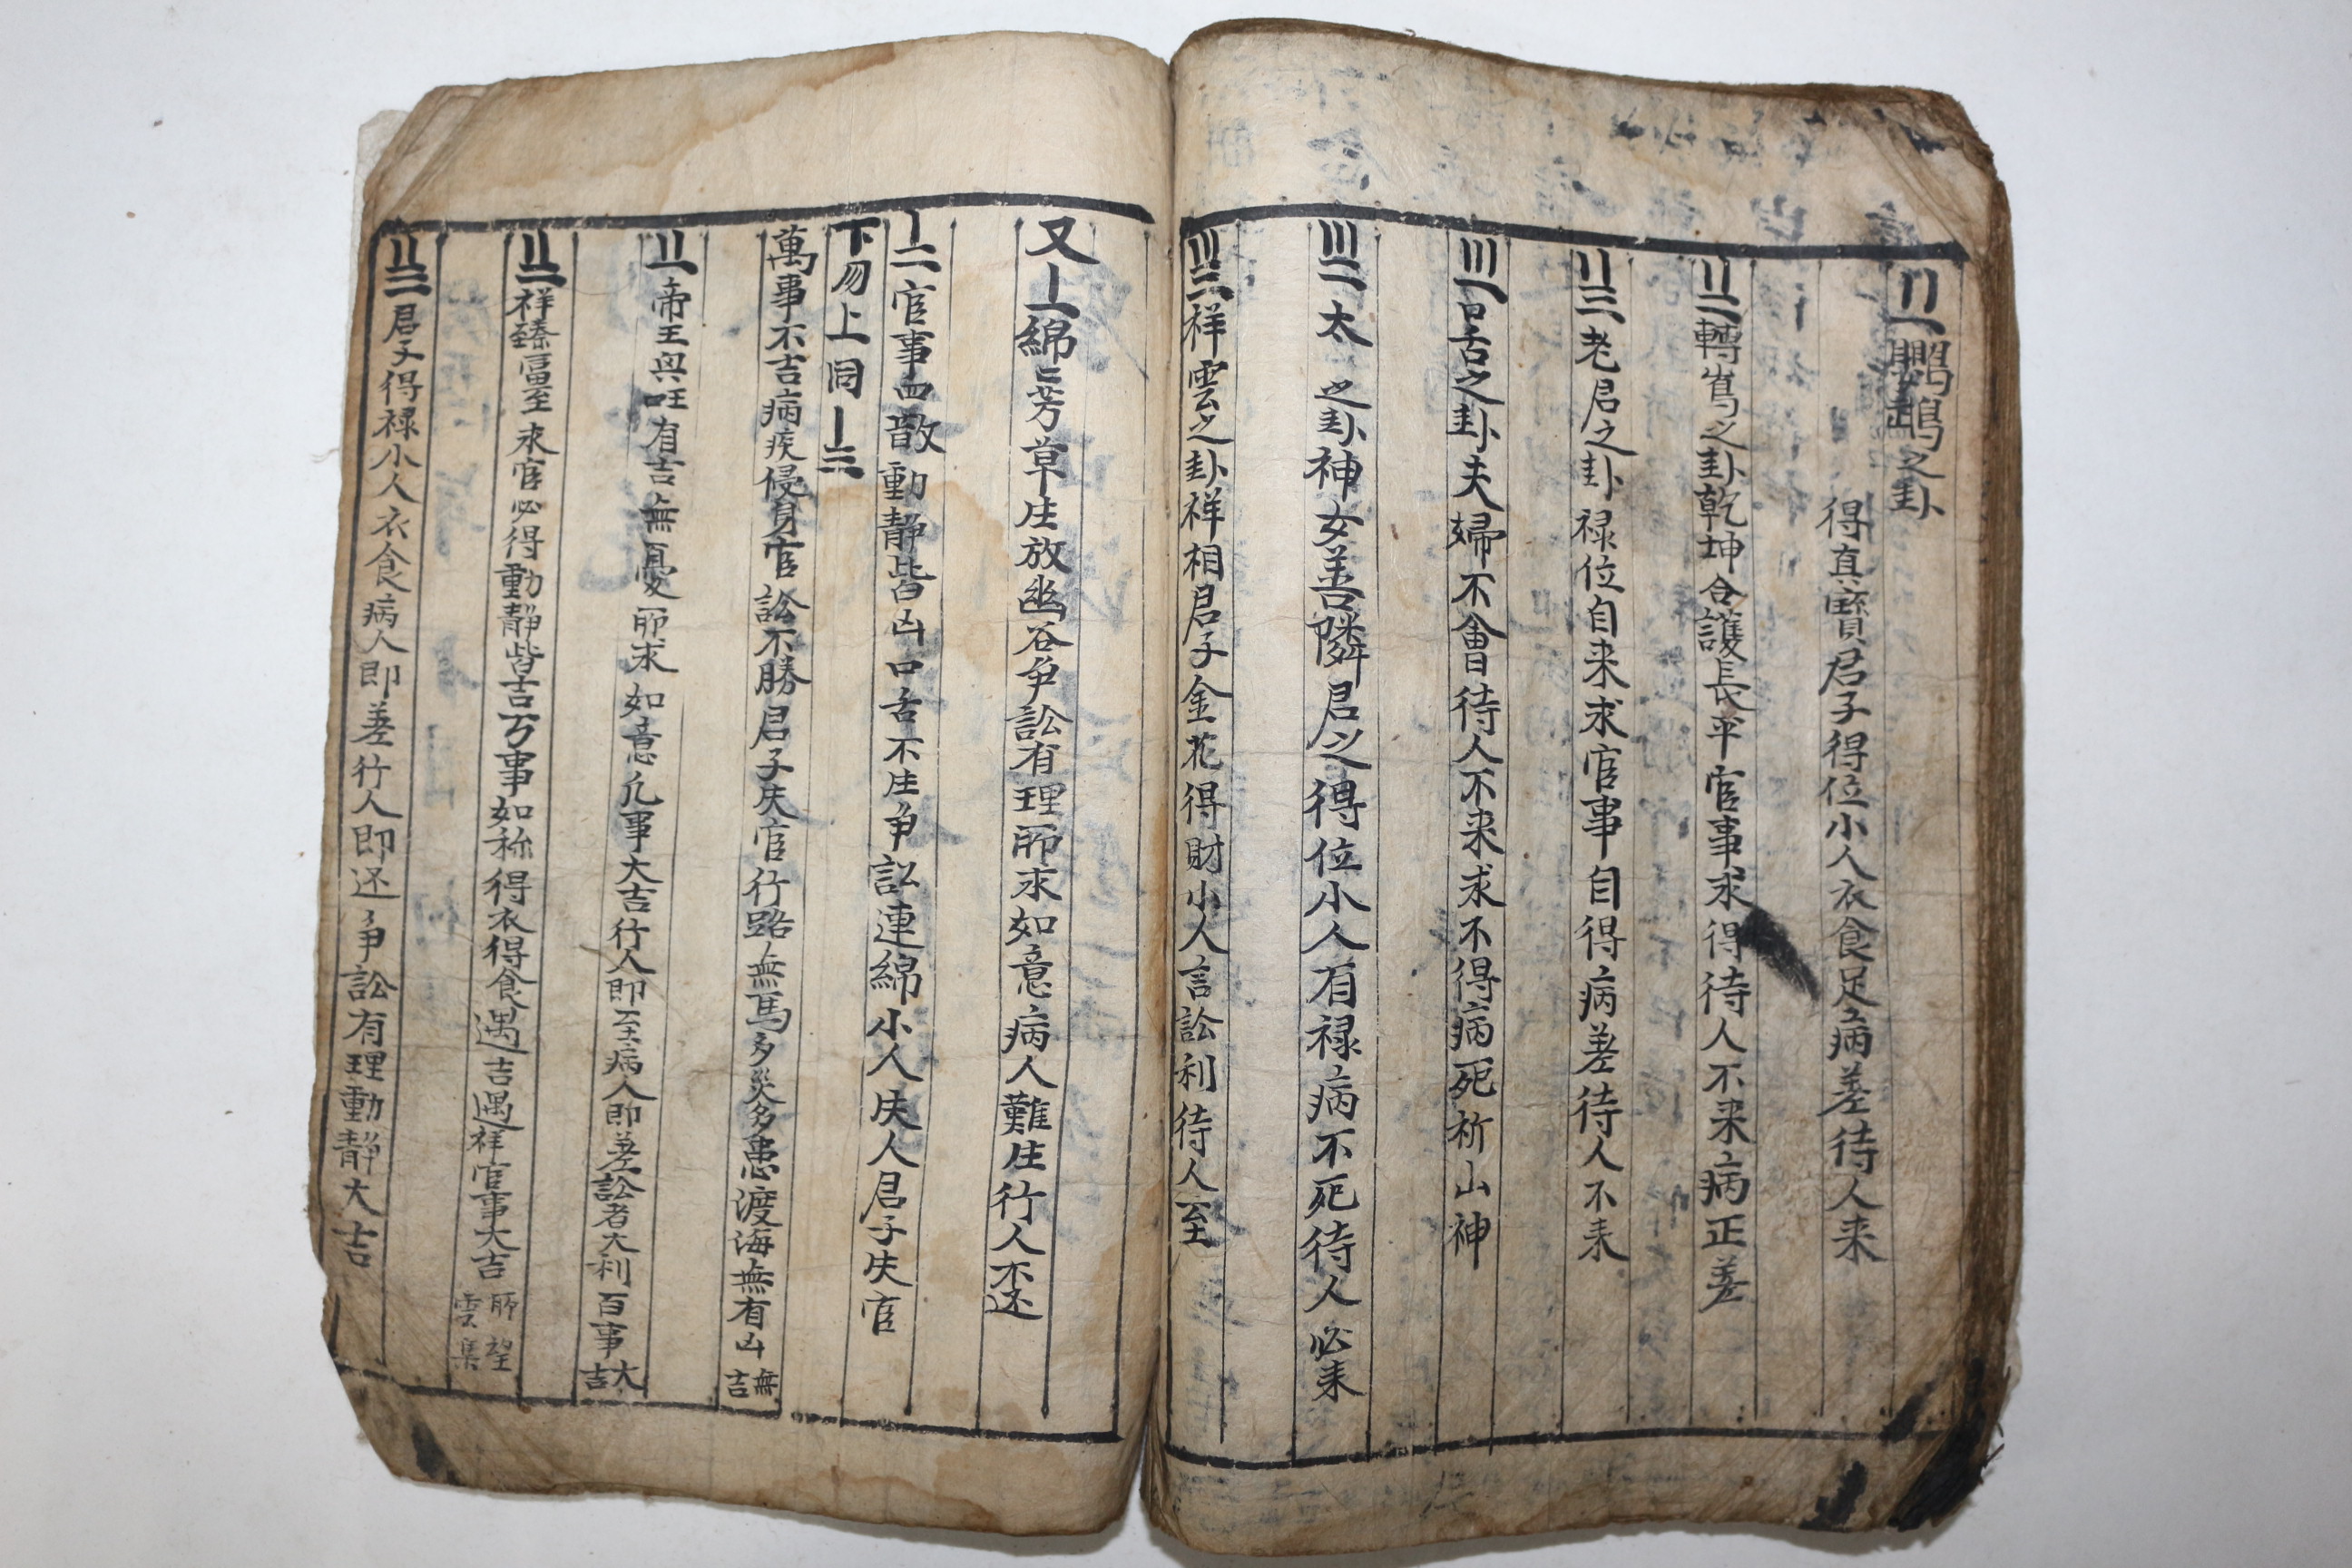 〢一鸚鵡之卦
得真寶君子得位小人衣食足病差待人来
〢二轉嵩之卦乾坤合護長平官事求得待人不来病正差
〢三老君之卦禄位自来求官事自得病差待人不来
〣一口舌之卦夫婦不會待人不来求不得病死祈山神
〣二太 之卦神女善隣君之得位小人有禄病不死待人必来
〣三祥雲之卦祥相君子金花得財小人言訟利待人至
又〡一綿〻芳草生放幽谷爭訟有理所求如意病人難生行人不还
〡二官事四散動靜皆凶口舌不生爭訟連綿小人失人君子失官
下勿上同〡三
萬事不吉病疾侵身官訟不勝君子失官行路無馬多災多患渡海無有凶無吉
〢一帝王興旺有吉無憂所求如意凡事大吉行人即至病人即差訟者大利百事大吉
〢二祥臻富至求官必得動靜皆吉万事如称得衣得食遇吉遇祥官事大吉所望雲集
〢三君子得禄小人衣食病人即差行人即还爭訟有理動靜大吉